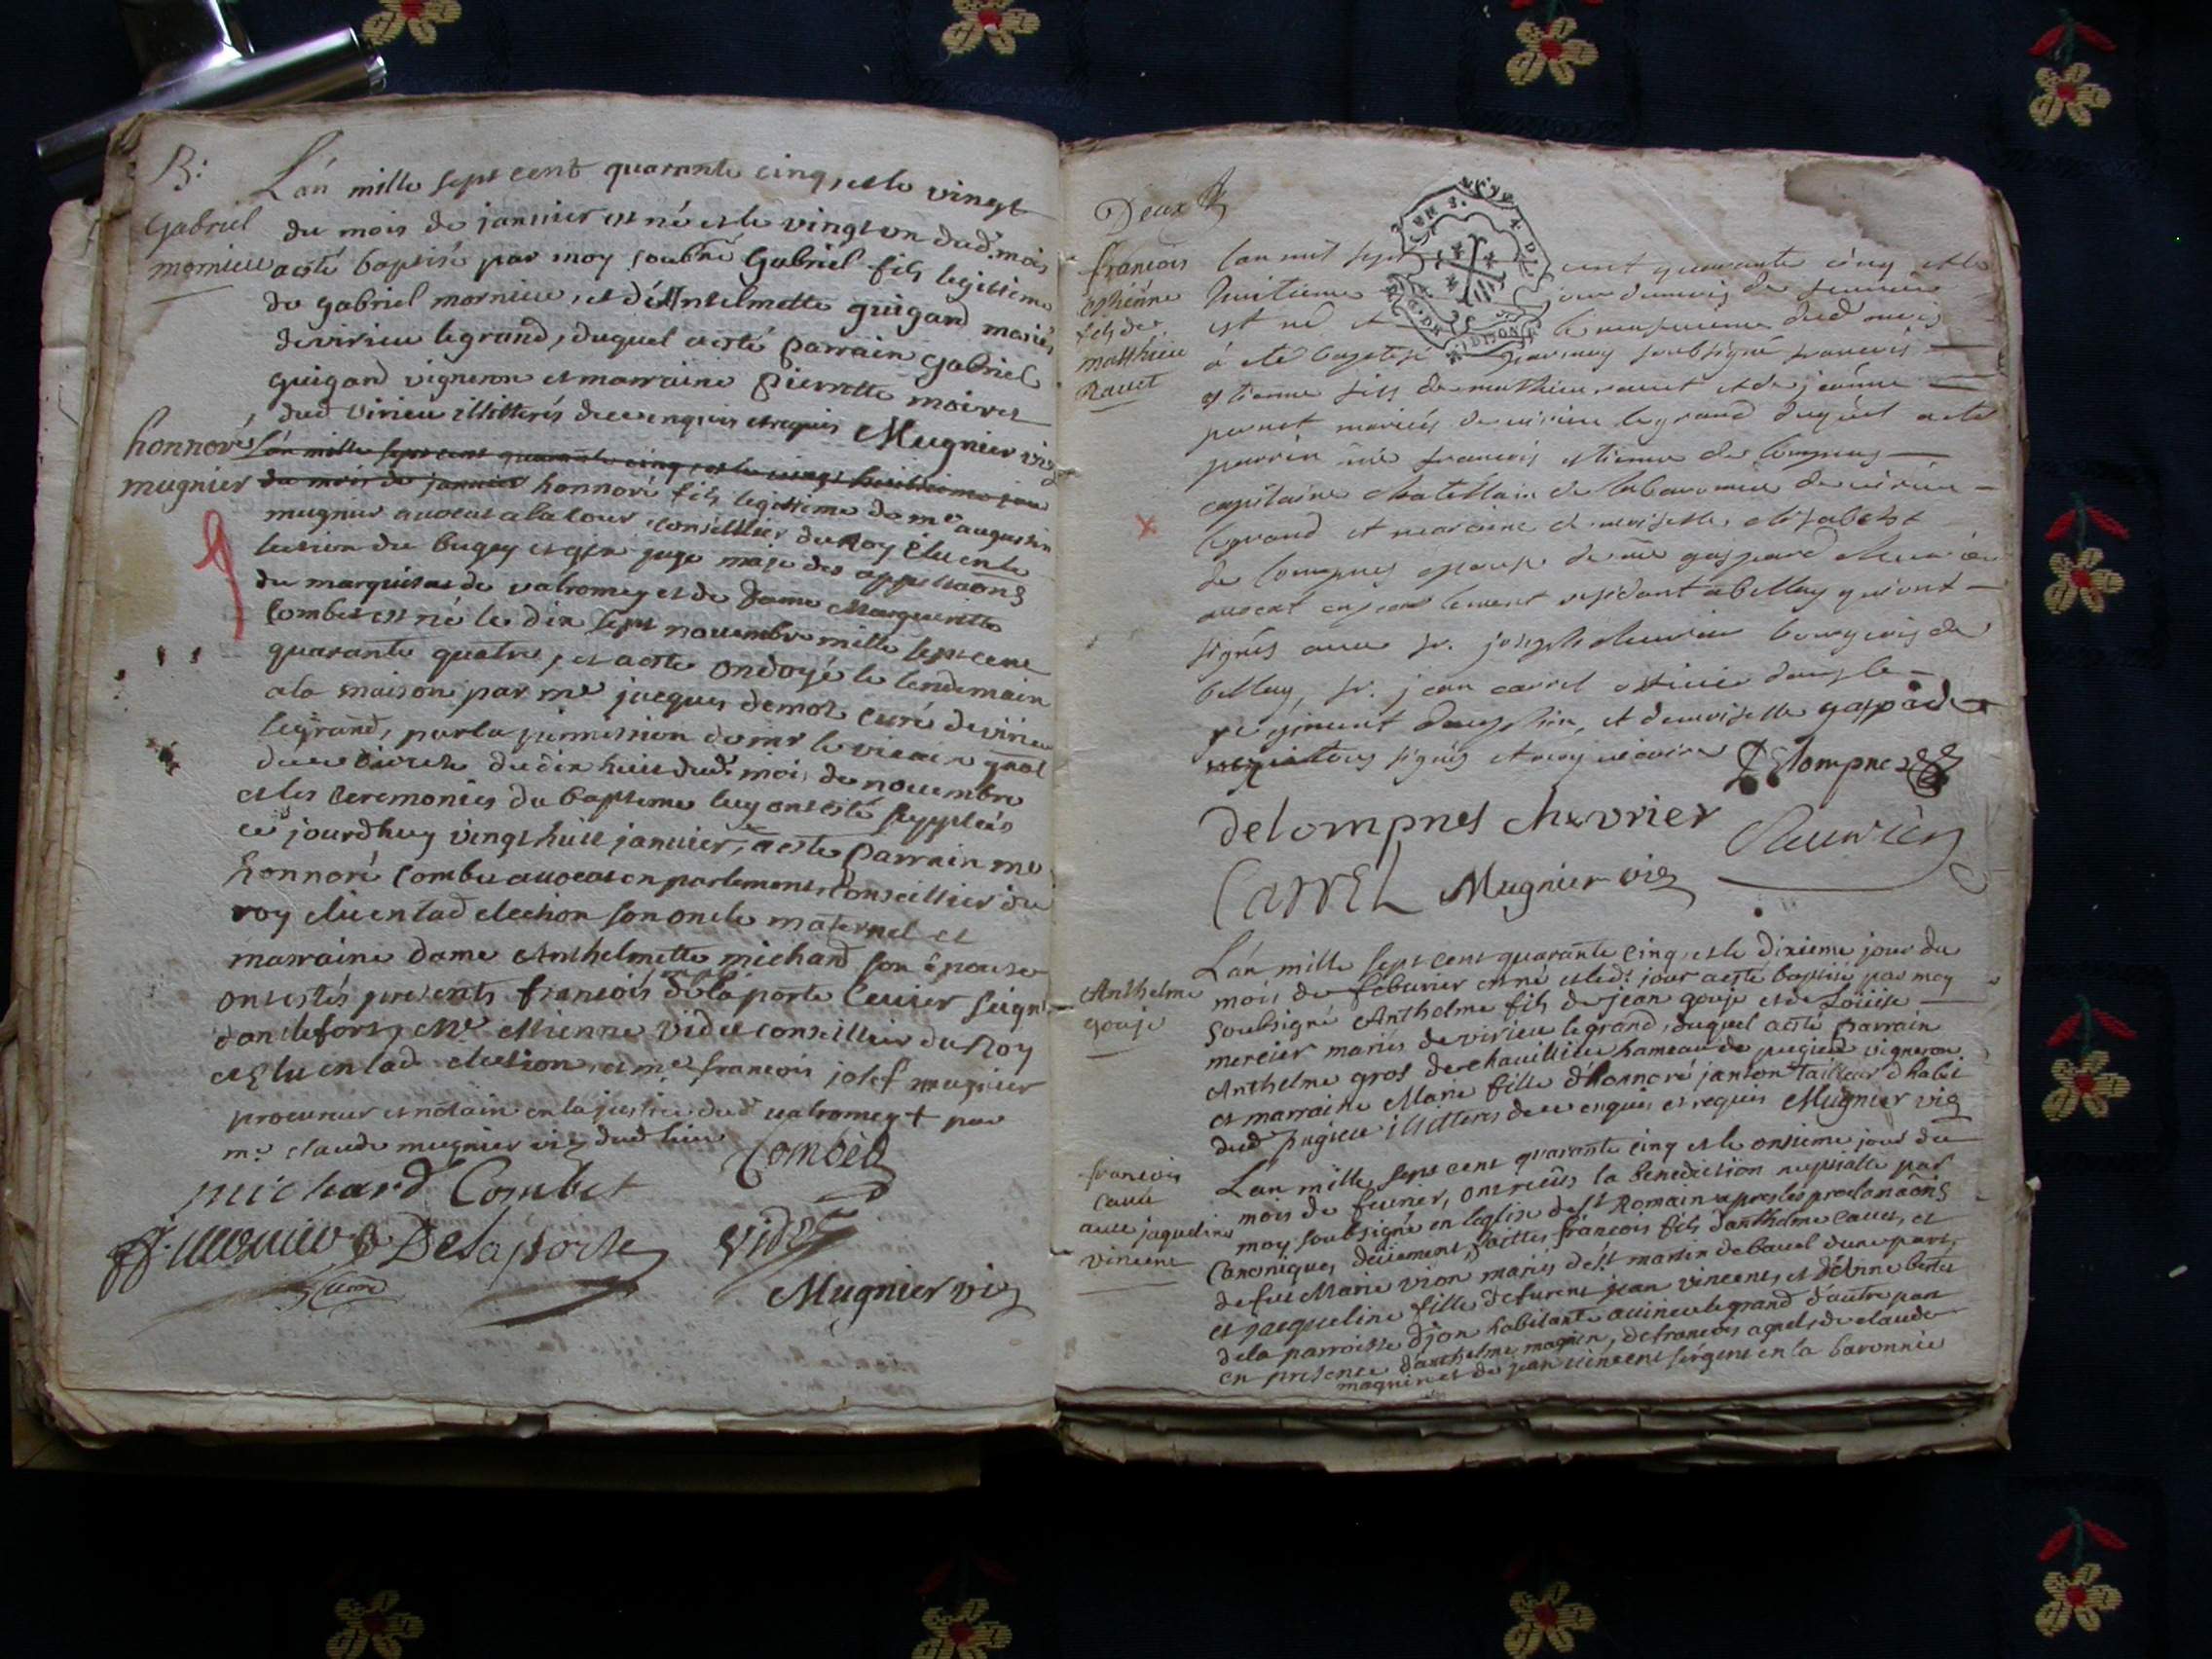 B:
Gabriel
mornieu
L'an mille sept cent quarante cinq, et le vingt
du mois de januier est né et le vingt un dud. mois
a esté baptisé par moy soubsné Gabriel fils legitime
de gabriel mornieu, et d'Antelmette guigard mariés
de virieu legrand, duquel a esté parrain gabriel
guigard vigneron et marraine pierrette moiret
dud virieu illitterés de ce enquis et requis Mugnier vic
honnoré
mugnier
L'an mille sept cent quarante cinq, et le vingt huitieme jour
du mois de januier honnoré fils legitime de me augustin
mugnier auocat a la cour conseillier du Roy Elu en le
lection du bugey et gex juge maje des appellaons
du marquisat de valromey et de Dame Margueritte
Combet est né le dix sept nouembre mille sept cent
quarante quatre, et a esté ondoyé le lendemain
a la maison par me jacques demoz curé de virieu
legrand, par la permission de mr le vicaire gnal
du dix huit dud. mois de nouembre
et les ceremonies du bapteme luy ont esté supplées
ce jourdhuy vingt huit januier, a esté parrain me
honnoré Combet auocat en parlement Conseillier du
roy elu en lad election son oncle maternel et
marraine dame Anthelmette michard son epouse
ont estés presents françois delaporte Seign
d'anglefort, Me Etienne Videt conseillier du Roy
et Elu en lad election et me françois josef mugnier
procureur et notaire en la justice dud valromey + par
me claude mugnier vic dud lieu
Combet
michard Combet
ff. mugnier Delaporte Videt
Mugnier vic
Deux
françois
estienne
fils de
matthieu
Rauet
lan mil sept cent quarante cinq et le
huitieme jour du mois de feurier
est né et le neufuieme dud mois
a ete baptisé par moy soubsigné francois
estienne fils de mathieu rauet et de jeanne
pernet mariés de virieu legrand duquel a ete
parrin me francois estienne de lompnes
capitaine chatellain de la baronnie de virieu
legrand et maraine demoiselle elisabeth
de lompnes epouse de me gaspard cheurier
auocat en parlement residant a belley qui ont
signés auec sr. joseph cheurier bourgeois de
belley, sr. jean carrel officier dans le
regiment dauphin, et demoiselle gasparde
signés et moy vicaire DeLompnes
delompnes chevrier Cheurier
Carrel Mugnier vic
Anthelme
gouje
L'an mille sept cent quarante cinq et le dixieme jour du
mois de feburier est né et led. jour a esté baptisé par moy
soubsigné Anthelme fils de jean gouje et de Loüise
mercier mariés de virieu legrand, duquel a esté parrain
Anthelme gros de chauillieu hameau de pugieu vigneron
et marraine Marie fille d'honnoré janton tailleur d'habit
dud pugieu illitterés de ce enquis et requis Mugnier vic
francois
cauet
auec jaqueline
vincent
L'an mille sept cent quarante cinq et le onsieme jour du
mois de feurier, ont reçus la benediction nuptialle par
moy soubsigné en l'eglise de st Romain apres les proclamaons
Canoniques deüement faittes francois fils d'anthelme cauet, et
de feu Marie vion mariés de st martin de bauel d'une part,
et jacqueline fille de furent jean vincent, et d'Anne bertet
de la parroisse d'jon habitante a virieu legrand d'autre part
en presence d'anthelme magnin, de francois aguet, de claude
magnin et de jean vincent sergent en la baronnie